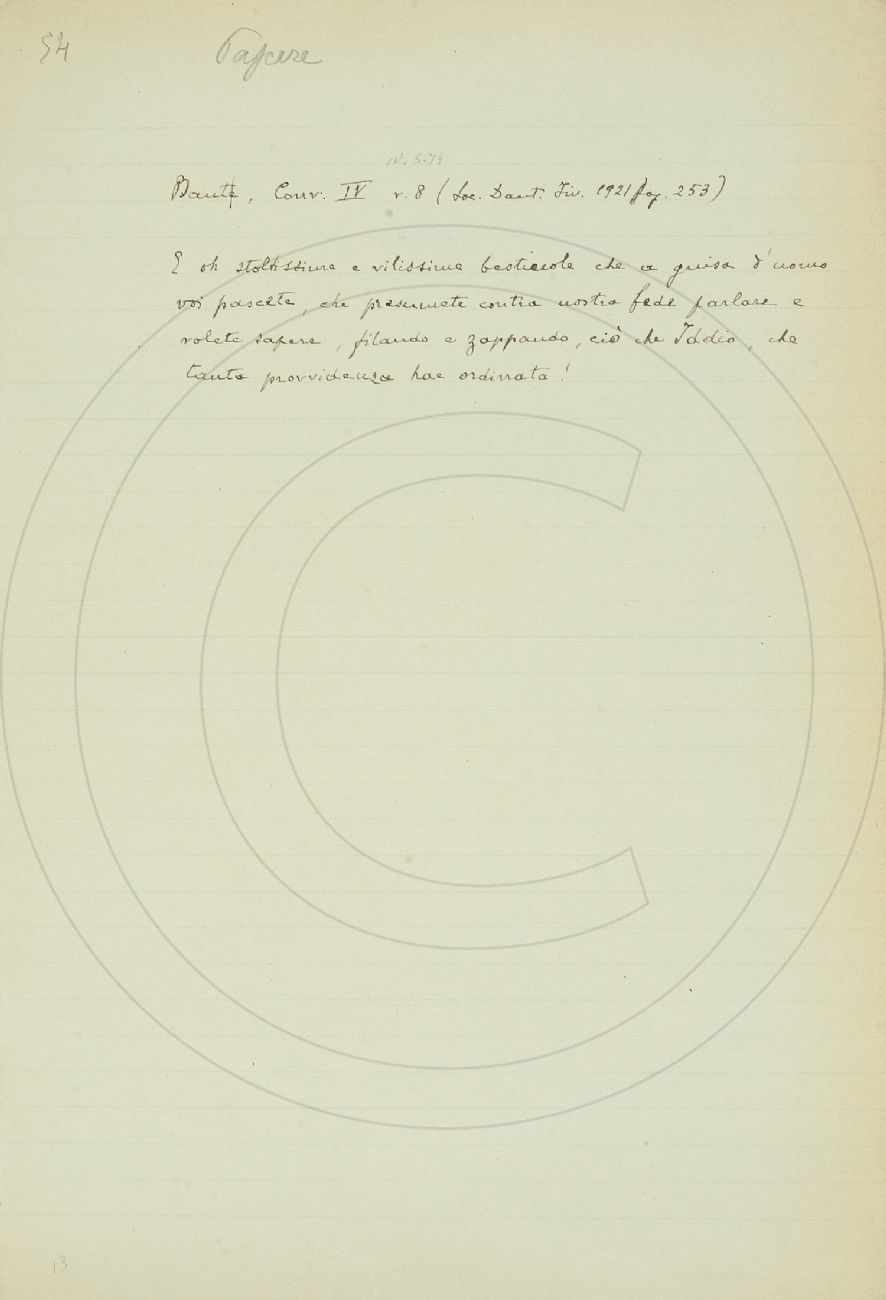 54
Pascere
IV. 5. 79
Dante, Conv. IV v. 8 (Soc. Dant. Fir. 1921 pag. 253)
E oh stoltissime e vilissime bestiuole che a guisa d'uomo
voi pascete, che presumete contra nostra fede parlare e
volete sapere, filando e zappando, ciò che Iddio, che
tanta provvidenza hae ordinata!
13